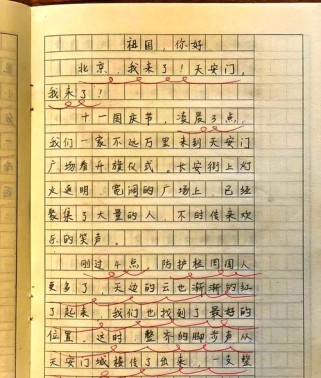 祖国，你好
北京，我来了！天安门，
我来了！
十一国庆节，凌晨3点，
我们一家不远万里来到天安门
广场看升旗仪式。长安街上灯
火通明，宽阔的广场上，已经
聚集了大量的人，不时传来欢
乐的笑声。
刚过4点，防护栏周围人
更多了，天边的云也渐渐的红
了起来，我们也找到了最好的
位置。这时，整齐的脚步声从
天安门城楼传了出来，一支整